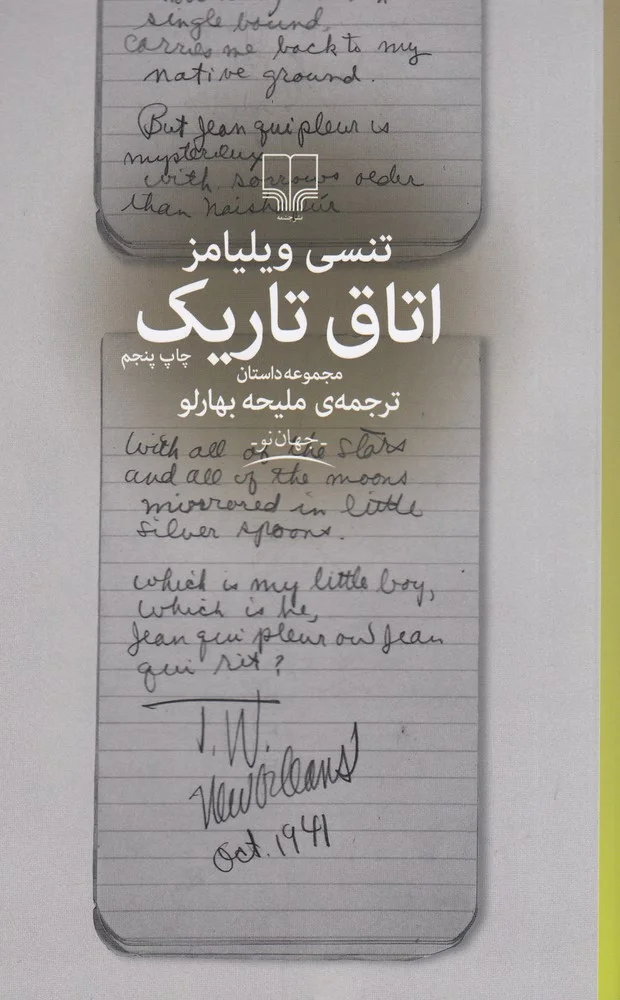 single bound,
carries me back to my
native ground.
But Jean qui pleur is
mysterieux
with sorrows older
than
نشرچشمه
تنسی ویلیامز
اتاق تاریک
چاپ پنجم
مجموعه داستان
ترجمه‌ی ملیحه بهارلو
جهان نو
With all of the stars
and all of the moons
mirrored in little
silver spoons.
Which is my little boy,
which is he,
Jean qui pleur ou Jean
qui rit?
T.W.
New Orleans
Oct. 1941